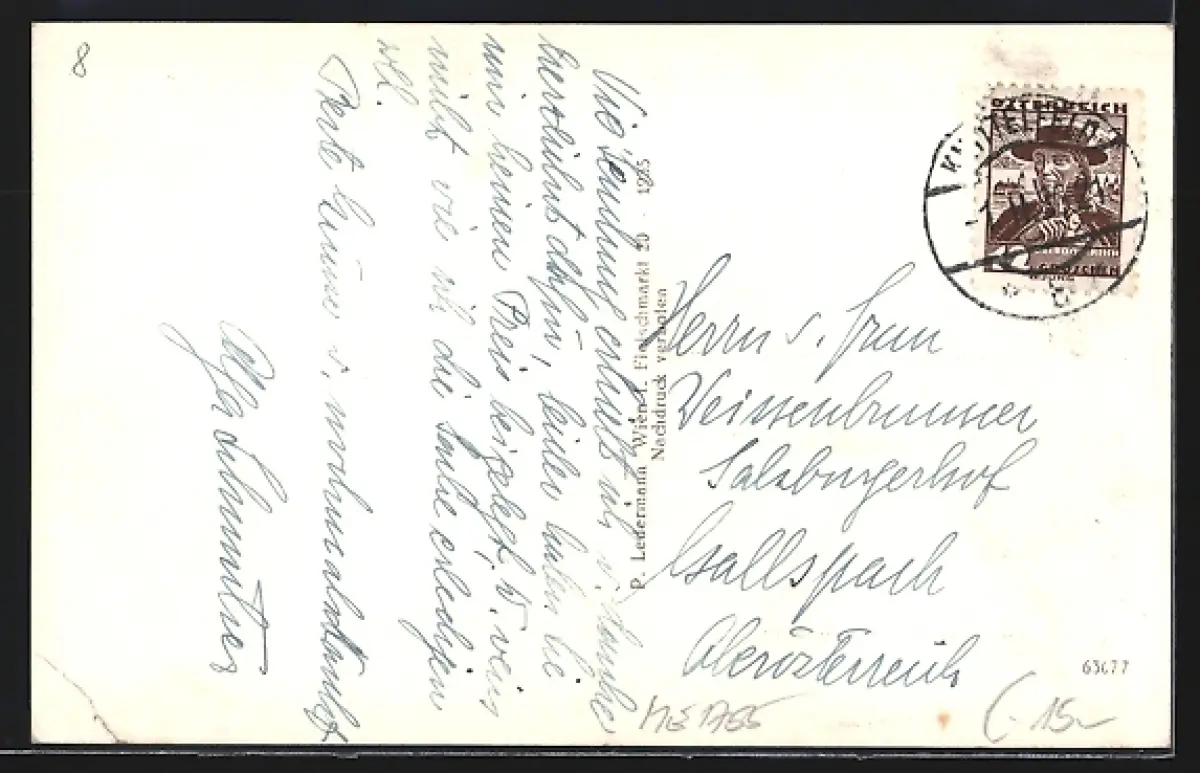 8
Die Sendung erhielt ich u. danke
herzlichst dafür, leider haben Sie
mir keinen Preis beigelegt, u. weis
nicht wie ich die Sache erledigen
soll.
Beste Grüsse u. nochmals dankt
P. Ledermann Wien I. Fleischmarkt 20 - 1935
Nachdruck verboten
ÖSTERREICH
KNITTELFELD
GROSCHEN
Herrn u. Frau
Weissenbrunner
Salzburgerhof
Gallspach
Oberösterreich
63677
(- 15 -